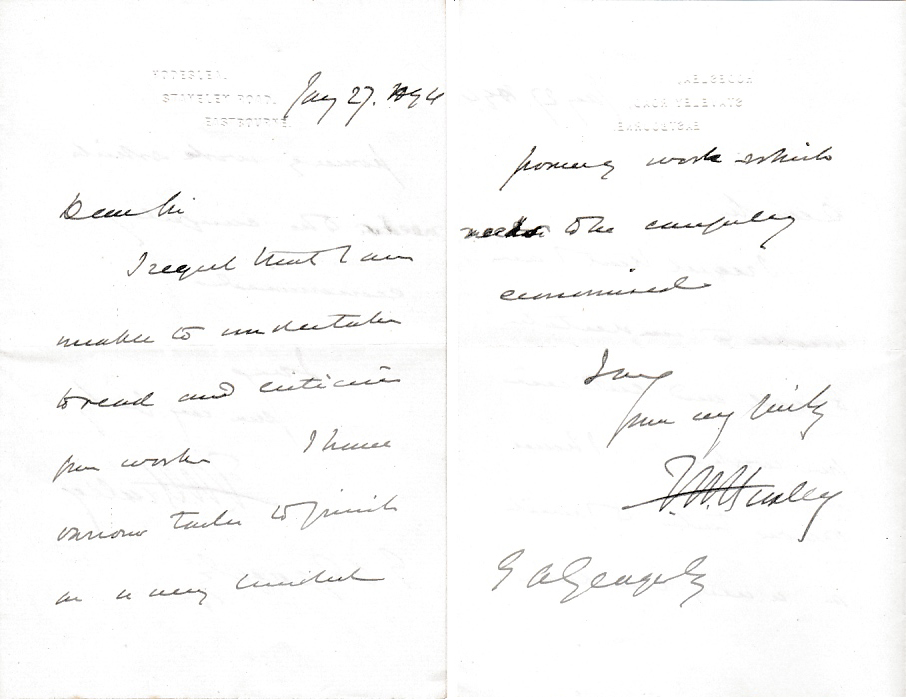 HODESLEA.
STAVELEY ROAD.
EASTBOURNE.
Jany 27. 1894
Dear Sir
I regret that I am
unable to undertake
to read and criticise
your work I have
various tasks to finish
on a very limited
power of work which
needs to be carefully
economised
I am
yours very faithfully
T. H. Huxley